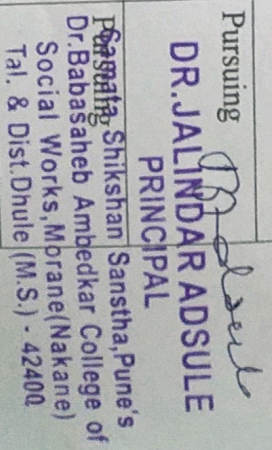 Pursuing
DR.JALINDAR ADSULE
PRINCIPAL
Pursuing
Samata Shikshan Sanstha,Pune's
Dr.Babasaheb Ambedkar College of
Social Works,Morane(Nakane)
Tal. & Dist.Dhule (M.S.) - 42400